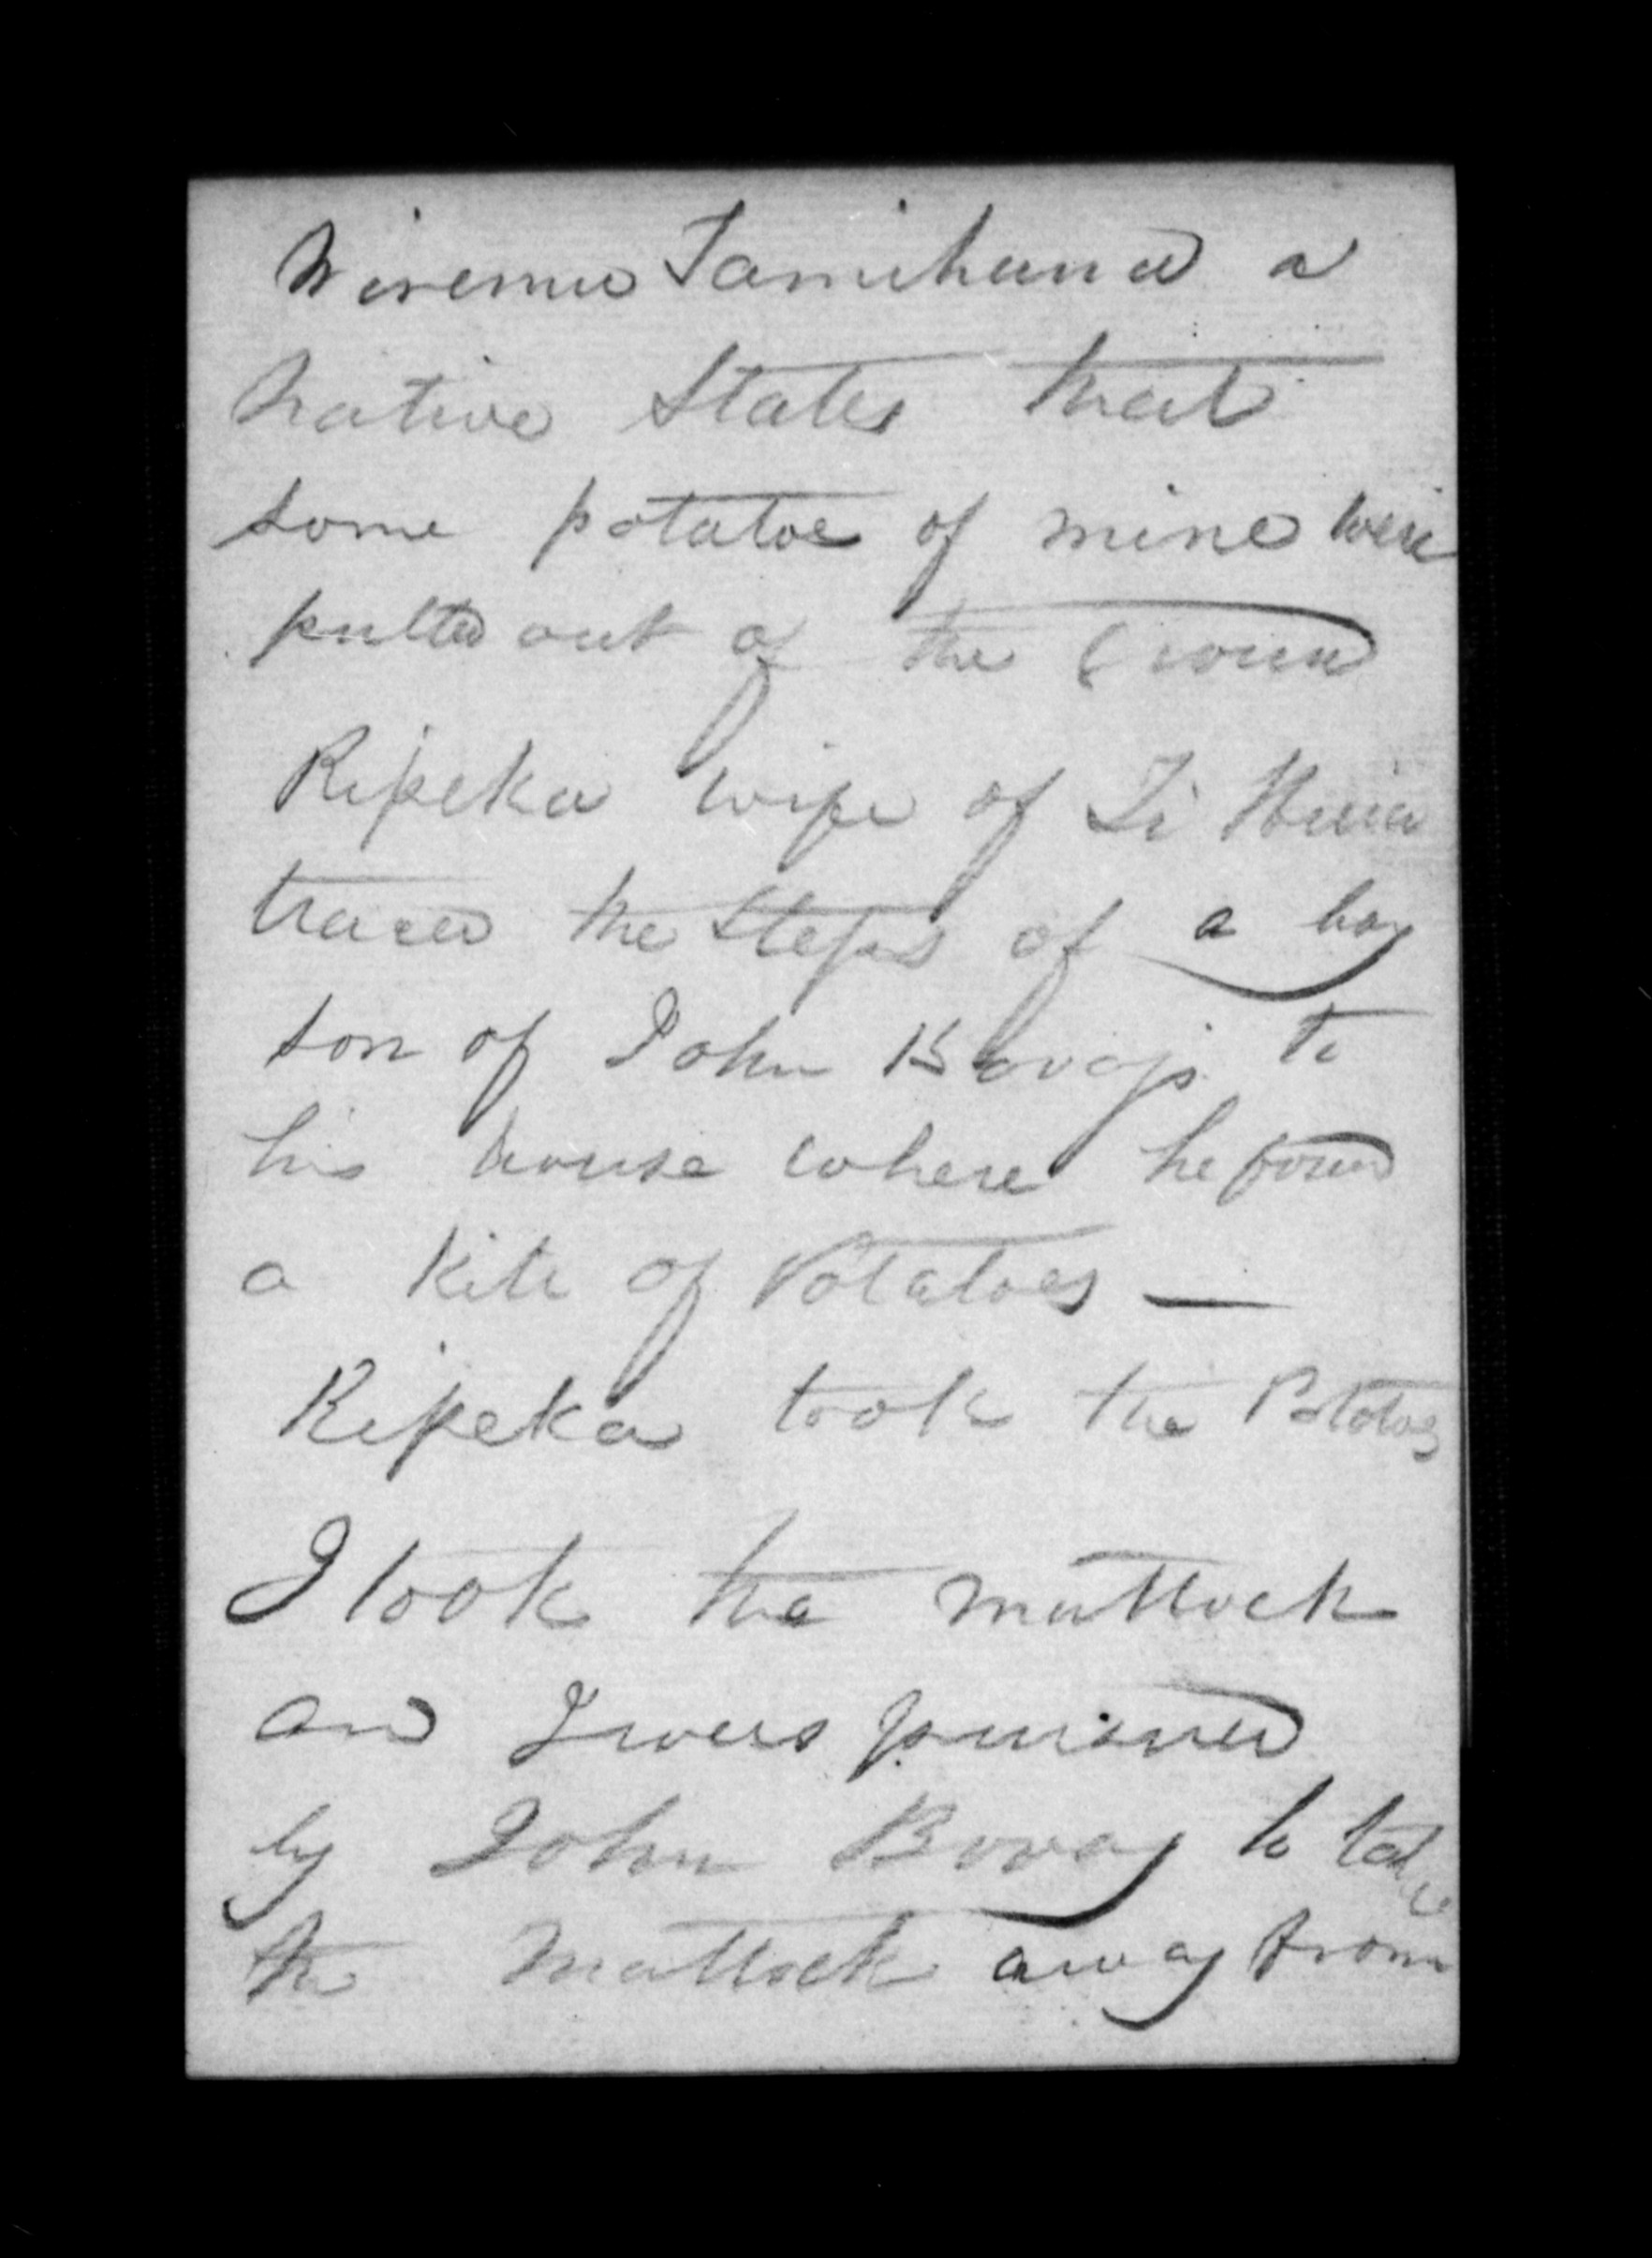 Wiremu Tamihana a
Native States that
some potatoe of mine were
pulled out of the Ground
Ripeka wife of Te Huia
traced the steps of a boy
son of John Bovays to
his house where he found
a Kite of Potatoes —
Ripeka took the Potatoes
I took the mattock
and I was pursued
by John Bovay to take
the Mattock away from